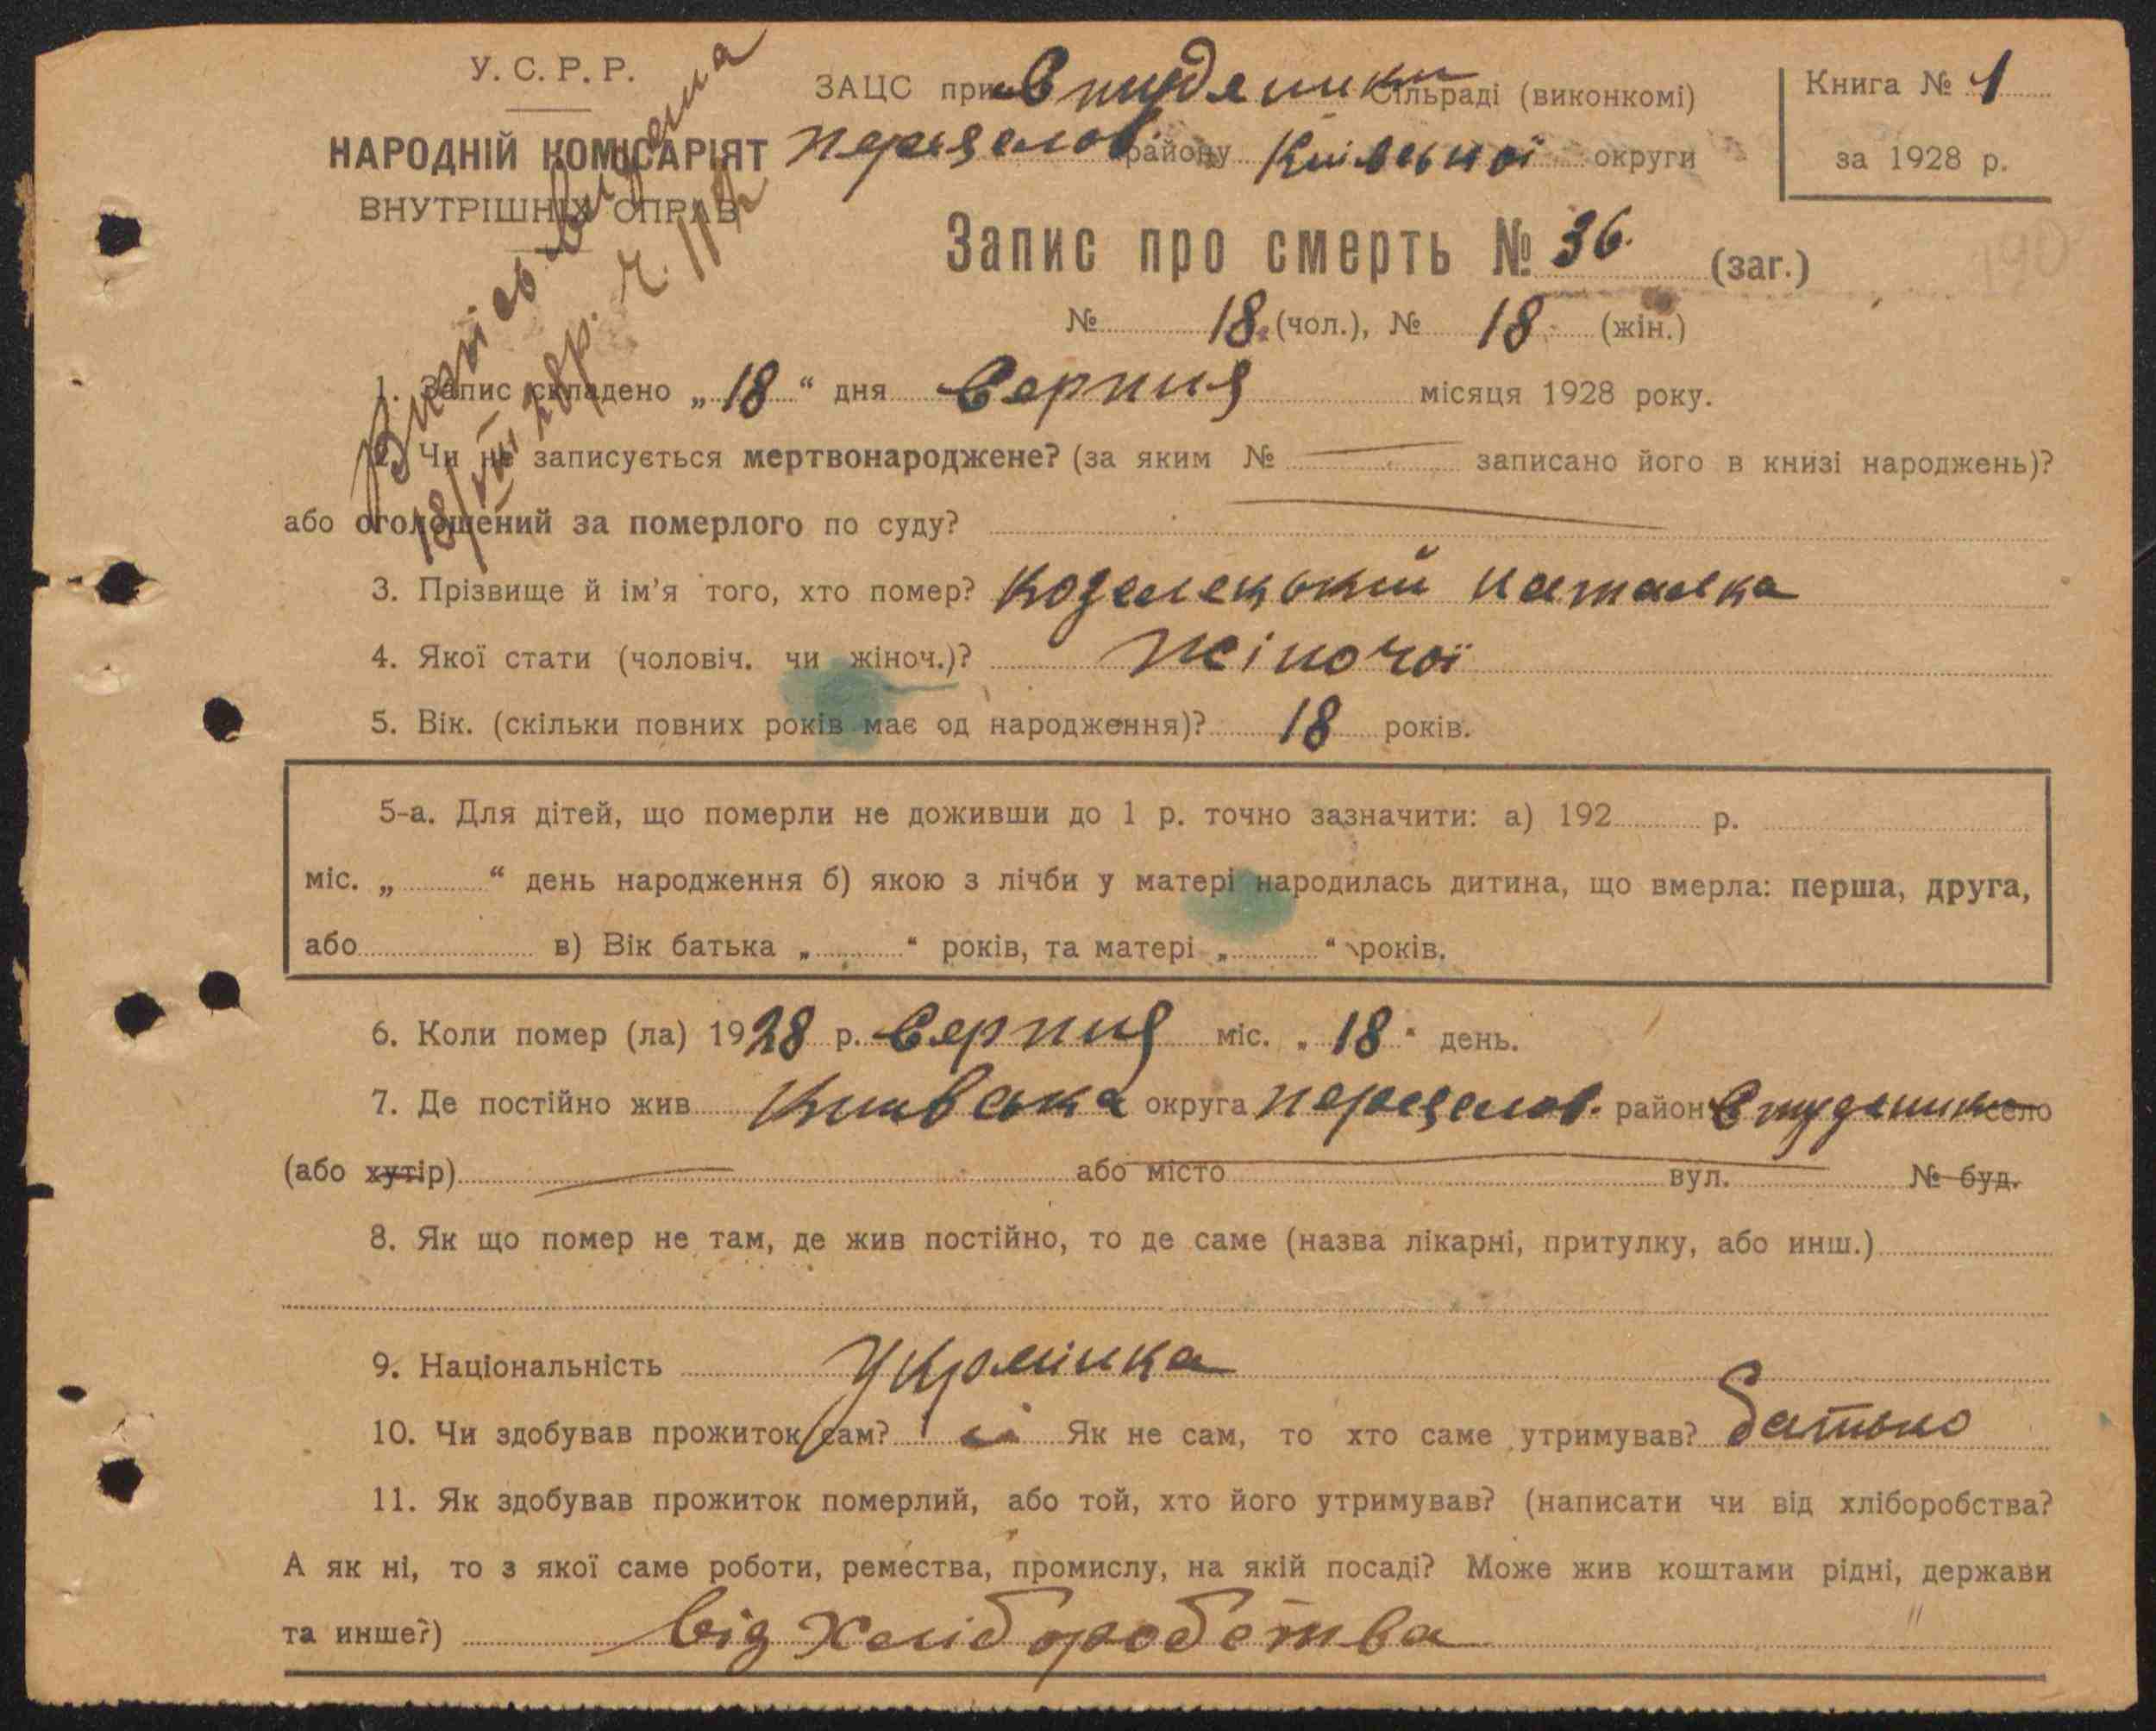 У. С. Р. Р.
НАРОДНІЙ КОМІСАРІЯТ
ВНУТРІШНІХ СПРАВ
Виписъ видана
18/VIII 28р. ч. 112
ЗАЦС при Студеники Сільраді (виконкомі)
Переяслов. району Київської округи
Книга № 1
за 1928 р.
Запис про смерть № 36. (заг.)
№ 18. (чол.), № 18 (жін.)
1. Запис складено „ 18 “ дня Серпня місяця 1928 року.
2. Чи не записується мертвонароджене? (за яким № — записано його в книзі народжень)?
або оголошений за померлого по суду? —
3. Прізвище й ім’я того, хто помер? Козелецький Наталка
4. Якої стати (чоловіч. чи жіноч.)? Жіночої
5. Вік. (скільки повних років має од народження)? 18 років.
5-а. Для дітей, що померли не доживши до 1 р. точно зазначити: а) 192 р.
міс. „ “ день народження б) якою з лічби у матері народилась дитина, що вмерла: перша, друга,
або в) Вік батька „ “ років, та матері „ “ років.
6. Коли помер (ла) 1928 р. Серпня міс. „ 18 “ день.
7. Де постійно жив Київська округа Переяслов. район Студеники село
(або хутір) — або місто — вул. № буд.
8. Як що помер не там, де жив постійно, то де саме (назва лікарні, притулку, або инш.)
9. Національність Українка
10. Чи здобував прожиток сам? ні Як не сам, то хто саме утримував? батько
11. Як здобував прожиток померлий, або той, хто його утримував? (написати чи від хліборобства?
А як ні, то з якої саме роботи, ремества, промислу, на якій посаді? Може жив коштами рідні, держави
та инше?) від Хліборобства